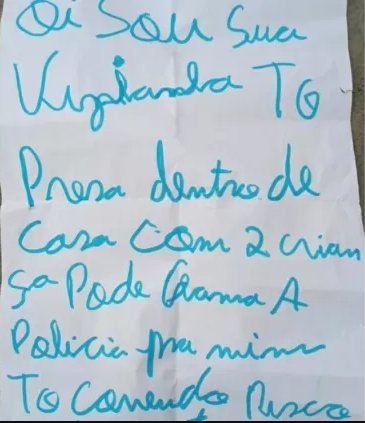 Oi Sou Sua
Viziandra TO
Presa dentro de
Casa Com 2 crian
ça Pode Chama A
Policia pra mim
To Correndo Risco